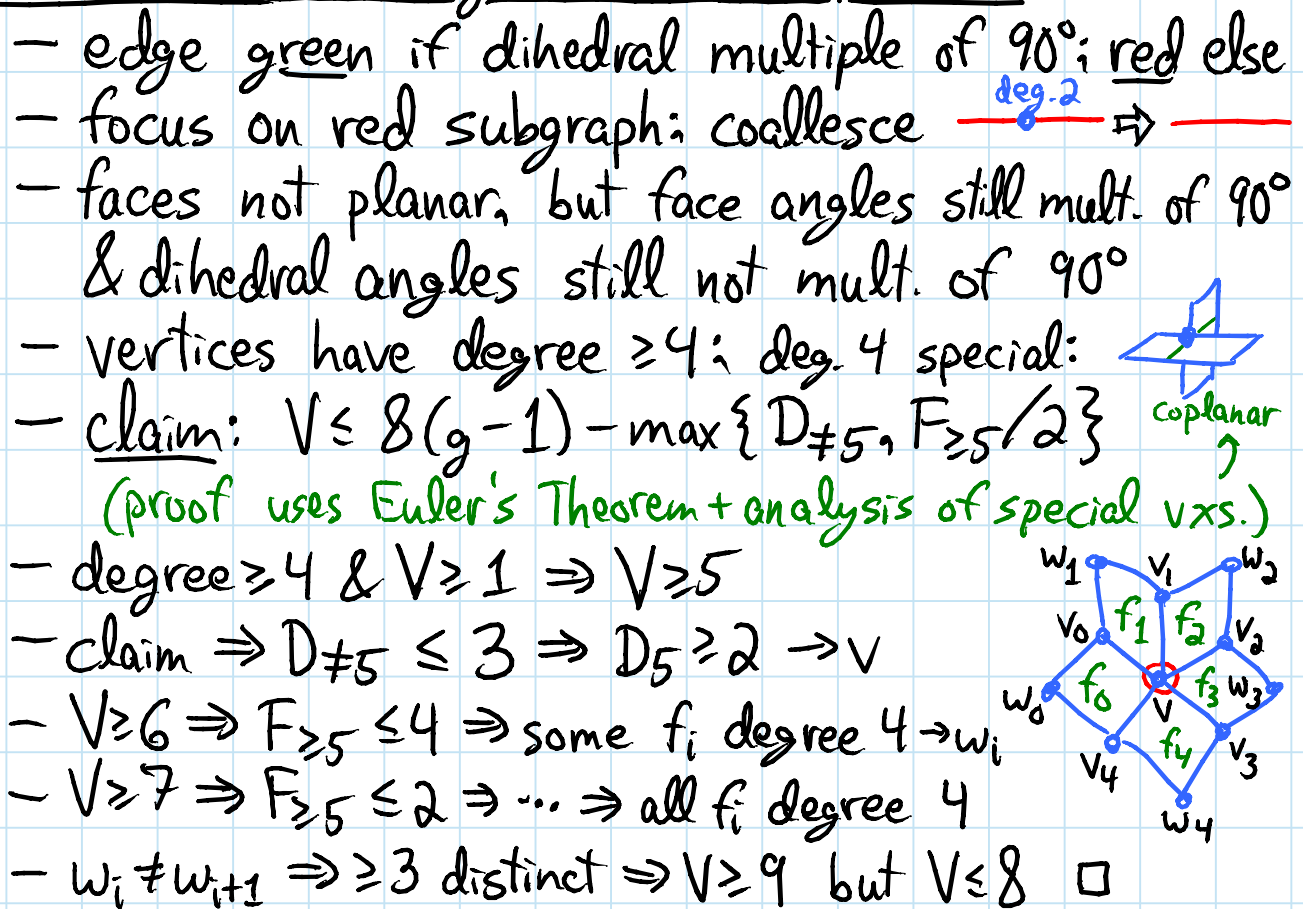 – edge green if dihedral multiple of 90°; red else
– focus on red subgraph; coallesce deg. 2 ⇒
– faces not planar, but face angles still mult. of 90°
& dihedral angles still not mult. of 90°
– vertices have degree ≥4; deg. 4 special:
coplanar
– claim: V ≤ 8(g-1) - max{D≠5, F≥5/2}
(proof uses Euler's Theorem + analysis of special vxs.)
– degree ≥4 & V≥1 ⇒ V≥5
– claim ⇒ D≠5 ≤ 3 ⇒ D5 ≥2 → v
– V≥6 ⇒ F≥5 ≤4 ⇒ some fi degree 4 → wi
– V≥7 ⇒ F≥5 ≤2 ⇒ ... ⇒ all fi degree 4
– wi ≠ wi+1 ⇒ ≥3 distinct ⇒ V≥9 but V≤8 □
w1 v1 w2
f1 f2
v0 v2
f0 f3 w3
w0 v
v4 f4 v3
w4